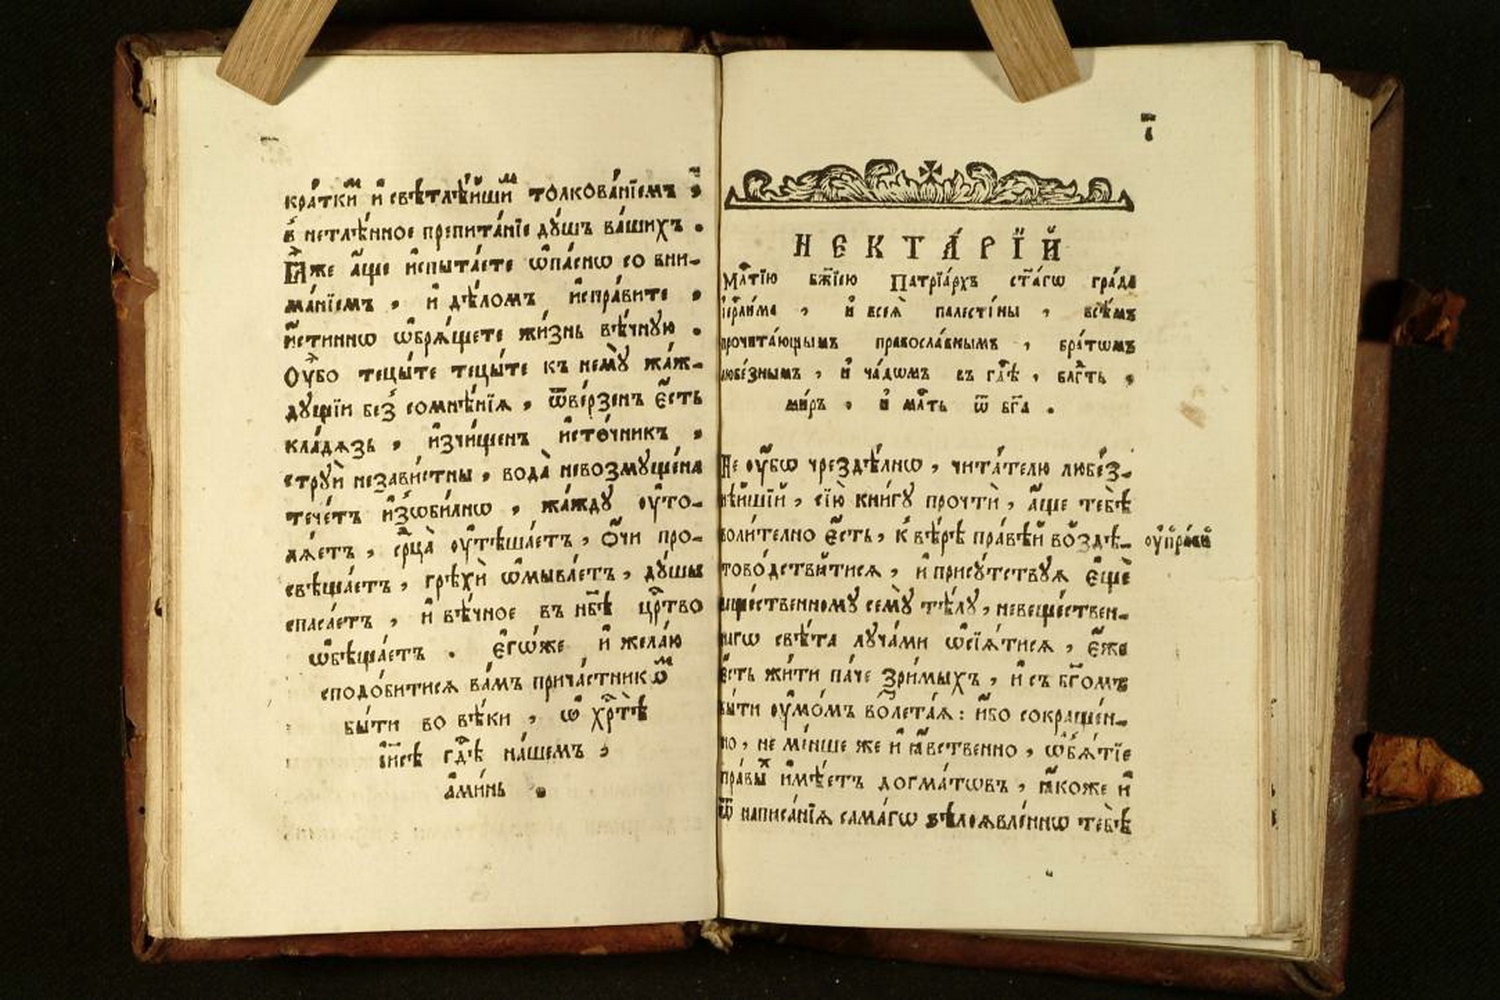 кра́ткиⷨ и҆ свѣтлѣ́йшиⷨ толкова́нїемъ ,
в̾ нетлѣ́нное препита́нїе дꙋ́шъ ва́шихъ .
Ꙗ҆̀же а҆́ще и҆спыта́ете ѡ҆па́снѡ со вни-
ма́нїемъ , и҆ дѣ́ломъ и҆спра́вите ,
и҆́стиннѡ ѡ҆брѧ́щете жи́знь вѣ́чнꙋю .
Ѹ҆̀бо тецы́те тецы́те къ немꙋ̀ жа́ж-
дꙋщїи без̾ сомнѣ́нїѧ , ѿве́рзенъ є҆́сть
кла́дѧзь , и҆зчи́щенъ и҆сто́чникъ ,
стрꙋи̑ незави́стны , вода̀ невозмꙋще́на
тече́тъ и҆з̾ѡби́лнѡ , жа́ждꙋ ѹ҆то-
лѧ́етъ , срⷣца̀ ѹ҆тѣша́етъ , ѻ҆́чи про-
свѣща́етъ , грѣхѝ ѡ҆мыва́етъ , дꙋ́шы
спаса́етъ , и҆ вѣ́чное въ нб҃ѣ црⷭ҇тво
ѡ҆бѣща́етъ . є҆гѡ́же и҆ жела́ю
сподо́битисѧ ва́мъ прича́стникѡⷨ
бы́ти во вѣ́ки , ѡ҆ хрⷭ҇тѣ̀
і҆и҃сѣ гдⷭ҇ѣ на́шемъ ,
а҆ми́нь .
і҃
НЕКТА́РЇЙ
Млⷭ҇тїю бж҃їею Патрїа́рхъ ст҃а́гѡ гра́да
і҆ерⷭ҇али́ма , и҆ всеѧ̀ палесті́ны , всѣ̑мъ
прочита́ющымъ правосла́внымъ , бра́тѡмъ
любе́знымъ , и҆ ча́дѡмъ въ гдⷭ҇ѣ , блгⷣть ,
ми́ръ . и҆ млⷭ҇ть ѿ бг҃а .
Не ѹ҆́бѡ чрездѣ́лнѡ , чита́телю любе́з-
нѣйшїй , сїю̀ кни́гꙋ прочтѝ , а҆́ще тебѣ̀
воли́телно є҆́сть , к̾ вѣ́рѣ пра́вѣй воз̾дѣ-
тово́дствитисѧ , и҆ присꙋ́тствꙋѧ є҆щѐ
веще́ственномꙋ семꙋ̀ тѣ́лꙋ , невеще́ствен-
нагѡ свѣ́та лꙋча́ми ѡ҆сїѧ́тисѧ , є҆́же
є҆́сть жи́ти па́че зри́мыхъ , и҆ съ бг҃омъ
бы́ти ѹ҆мо́мъ возлета́ѧ : и҆́бо сокраще́н-
но , не ме́нше же и҆ ꙗ҆́вственно , ѡ҆б̾ѧ́тїе
пра́выⷯ и҆мѣ́етъ догма́тѡвъ , ꙗ҆́коже и҆
ѿ написа́нїѧ сама́гѡ ѕѣлоѧвле́ннѡ тебѣ̀